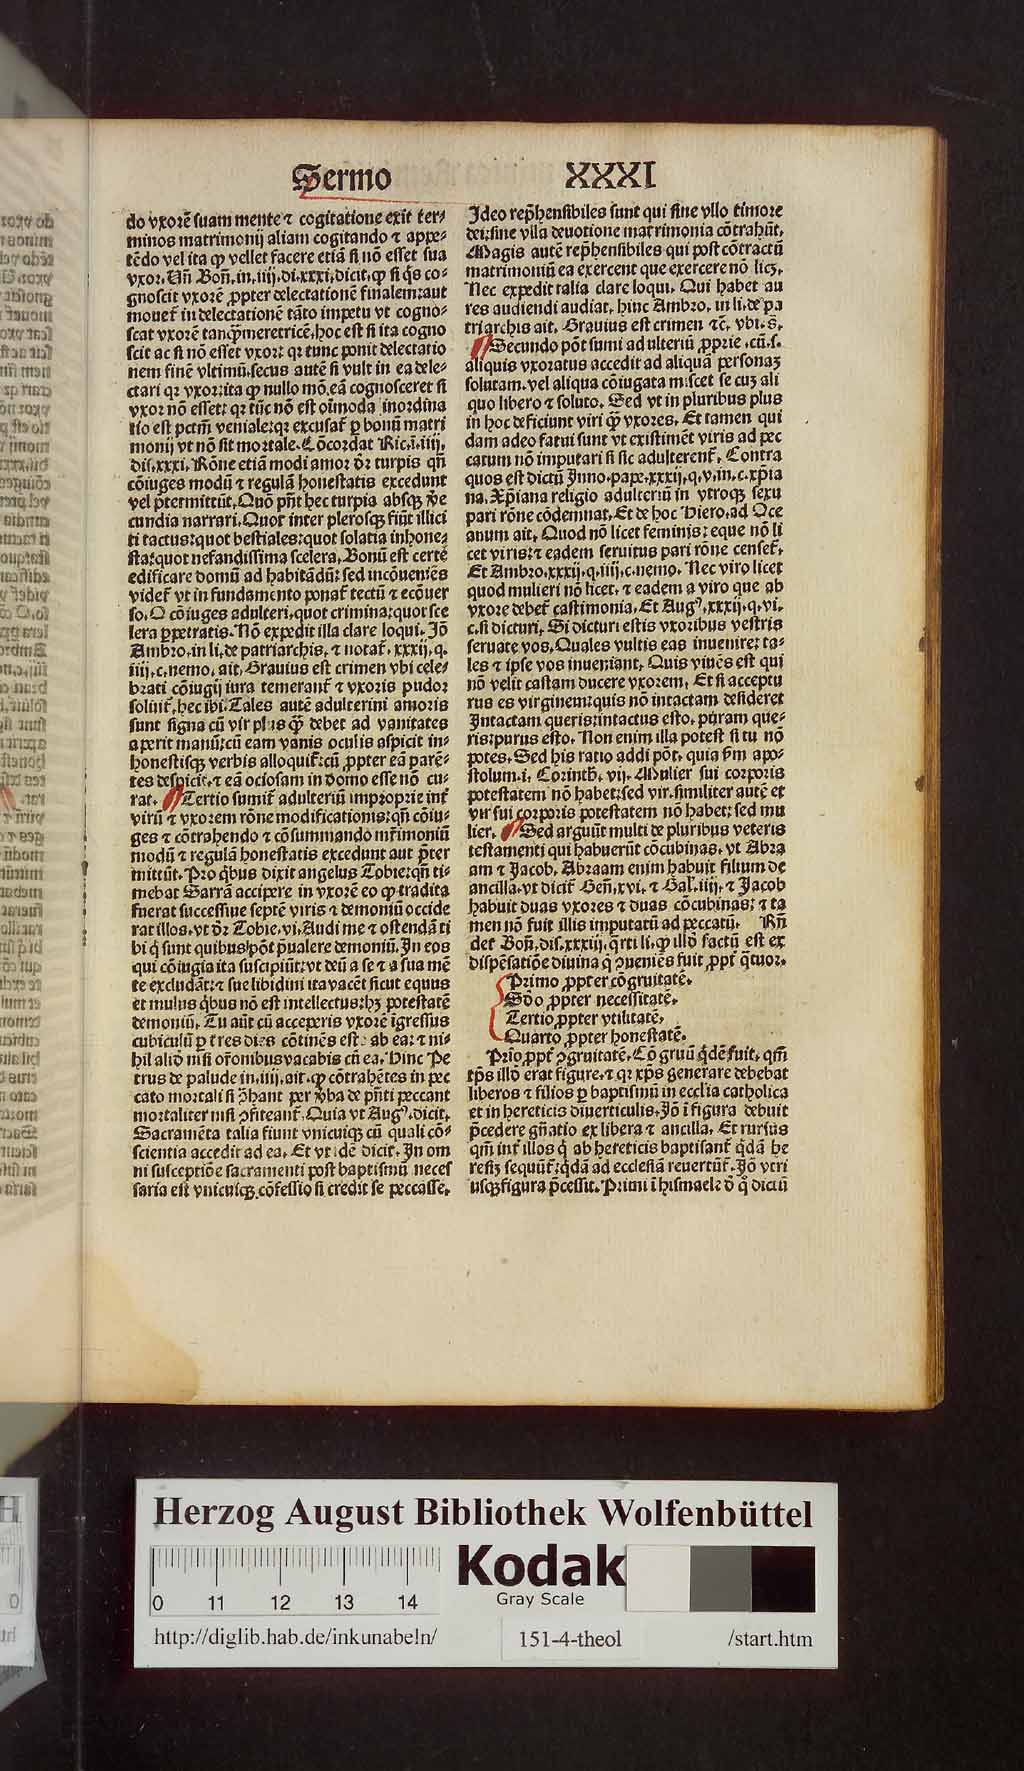 Sermo XXXI
do vxorē suam mente ⁊ cogitatione exit ter⸗
minos matrimonij aliam cogitando ⁊ appe⸗
tēdo vel ita ꝙ vellet facere etiā si nō esset sua
vxor. Uñ Boñ. in. iiij. di. xxxi. dicit, ꝙ si q̇s co⸗
gnoscit vxorē ꝓpter delectationē finalem: aut
mouet̃ in delectationē tāto impetu vt cogno⸗
scat vxorē tanꝙ̃ meretricē, hoc est si ita cogno
scit ac si nō esset vxor: qꝛ tunc ponit delectatio
nem finē vltimū. secus autē si vult in ea dele⸗
ctari qꝛ vxor: ita ꝙ nullo mō. eā cognosceret si
vxor nō esset: qꝛ tūc nō est oīmoda inordina
tio est pctm̄ veniale: qꝛ excusat̃ ꝑ bonū matri
monij vt nō sit mortale. Cōcordat Ric. ī. iiij.
dis. xxxi. Rōne etiā modi amor dr̄ turpis qñ
cōiuges modū ⁊ regulā honestatis excedunt
vel p̄termittūt. Quō pñt hec turpia absqꝫ v̄e
cundia narrari. Quot inter plerosqꝫ fiūt illici
ti tactus: quot bestiales: quot solatia inhone⸗
sta: quot nefandissima scelera. Bonū est certē
edificare domū ad habitādū: sed incōueniēs
videt̃ vt in fundamento ponat̃ tectū ⁊ ecōuer
so. O cōiuges adulteri. quot crimina: quot sce
lera ꝑpetratis. Nō expedit illa clare loqui. Jō
Ambro. in li. de patriarchis. ⁊ notat̃. xxxij. q.
iiij. c. nemo. ait. Grauius est crimen vbi cele⸗
brati cōiugij iura temerant̃ ⁊ vxoris pudor
soluit̃. hec ibi. Tales autē adulterini amoris
sunt signa cū vir plus ꝙ̃ debet ad vanitates
aperit manū: cū eam vanis oculis aspicit in⸗
honestisqꝫ verbis alloquit̃: cū ꝓpter eā parē⸗
tes despicit. ⁊ eā ociosam in domo esse nō cu⸗
rat. Tertio sumit̃ adulteriū improprie int̃
virū ⁊ vxorem rōne modificationis: qñ cōiu⸗
ges ⁊ cōtrahendo ⁊ cōsummando mr̄imoniū
modū ⁊ regulā honestatis excedunt aut p̄ter
mittūt. Pro q̇bus dixit angelus Tobie: qñ ti⸗
mebat Sarrā accipere in vxorē eo ꝙ tradita
fuerat successiue septē viris ⁊ demoniū occide
rat illos. vt dr̄ Tobie. vi. Audi me ⁊ ostendā ti
bi q̇ sunt quibus pōt p̄ualere demoniū. In eos
qui cōiugia ita suscipiūt: vt deū a se ⁊ a sua mē
te excludāt: ⁊ sue libidini ita vacēt sicut equus
et mulus q̇bus nō est intellectus: hꝫ potestatē
demoniū. Tu aūt cū acceperis vxorē īgressus
cubiculū ꝑ tres dies cōtinēs esto ab ea: ⁊ ni⸗
hil aliō nisi or̄onibus vacabis cū ea. Hinc Pe
trus de palude in. iiij. ait. ꝙ cōtrahētes in pec
cato mortali si ꝯhant per v̄ba de pn̄ti peccant
mortaliter nisi ꝯfiteant̃. Quia vt Augꝰ. dicit.
Sacramēta talia fiunt vnicuiqꝫ cū quali cō⸗
scientia accedit ad ea. Et vt idē dicit. In om
ni susceptiōe sacramenti post baptismū neces
saria est vnicuiqꝫ cōfessio si credit se peccasse.
Ideo rep̄hensibiles sunt qui sine vllo timore
dei: sine vlla deuotione matrimonia cōtrahūt.
Magis autē rep̄hensibiles qui post cōtractū
matrimoniū ea exercent que exercere nō licꝫ.
Nec expedit talia clare loqui. Qui habet au
res audiendi audiat. hinc Ambro. in li. de pa
triarchis ait. Grauius est crimen ⁊c̄. vbi. s̄.
Secundo pōt sumi adulteriū ꝓprie. cū. s.
aliquis vxoratus accedit ad aliquā personaꝫ
solutam. vel aliqua cōiugata miscet se cuꝫ ali
quo libero ⁊ soluto. Sed vt in pluribus plus
in hoc deficiunt viri ꝙ̃ vxores. Et tamen qui
dam adeo fatui sunt vt existimēt viris ad pec
catum nō imputari si sic adulterent̃. Contra
quos est dictū Inno. pape. xxxij. q. v. in. c. xp̄ia
na. Xp̄iana religio adulteriū in vtroqꝫ sexu
pari rōne cōdemnat. Et de hoc Hiero. ad Oce
anum ait. Quod nō licet feminis: eque nō li
cet viris: ⁊ eadem seruitus pari rōne censet̃.
Et Ambro. xxxij. q. iiij. c. nemo. Nec viro licet
quod mulieri nō licet. ⁊ eadem a viro que ab
vxore debet̃ castimonia. Et Augꝰ. xxxij. q. vi.
c. si dicturi. Si dicturi estis vxoribus vestris
seruate vos. Quales vultis eas inuenire: ta⸗
les ⁊ ipse vos inueniant. Quis viuēs est qui
nō velit castam ducere vxorem. Et si acceptu
rus es virginem: quis nō intactam desideret
Intactam queris: intactus esto. puram que⸗
ris: purus esto. Non enim illa potest si tu nō
potes. Sed his ratio addi pōt. quia ẜm apo⸗
stolum. i. Corinth̄. vij. Mulier sui corporis
potestatem nō habet: sed vir. similiter autē et
vir sui corporis potestatem nō habet: sed mu
lier. Sed arguūt multi de pluribus veteris
testamenti qui habuerūt cōcubinas. vt Abra
am ⁊ Jacob. Abraam enim habuit filium de
ancilla. vt dicit̃ Geñ. xvi. ⁊ Gal̄. iiij. ⁊ Jacob
habuit duas vxores ⁊ duas cōcubinas: ⁊ ta
men nō fuit illis imputatū ad peccatū. Rñ
det Boñ. dis. xxxiij. q̄rti li. ꝙ illō factū est ex
dispēsatiōe diuina q̄ ꝯueniēs fuit ꝓpt̃ q̄tuor.
Primo ꝓpter cōgruitatē.
Scdo ꝓpter necessitatē.
Tertio ꝓpter vtilitatē.
Quarto ꝓpter honestatē.
Prīo ꝓpt̃ ꝯgruitatē. Cōgruū q̇dē fuit. qm̄
tp̄s illō erat figure. ⁊ qꝛ xp̄s generare debebat
liberos ⁊ filios ꝑ baptismū in ecclīa catholica
et in hereticis diuerticulis. Jō ī figura debuit
p̄cedere gñatio ex libera ⁊ ancilla. Et rursus
qm̄ int̃ illos q̇ ab hereticis baptisant̃ q̇dā he
resiꝫ sequūt̃: q̇dā ad ecclesiā reuertūt̃. Jō vtri
usqꝫ figura p̄cessit. Primi ī hismaele d̄ q̇ dictū
Herzog August Bibliothek Wolfenbüttel
0 11 12 13 14
Kodak
Gray Scale
http://diglib.hab.de/inkunabeln/ 151-4-theol /start.htm